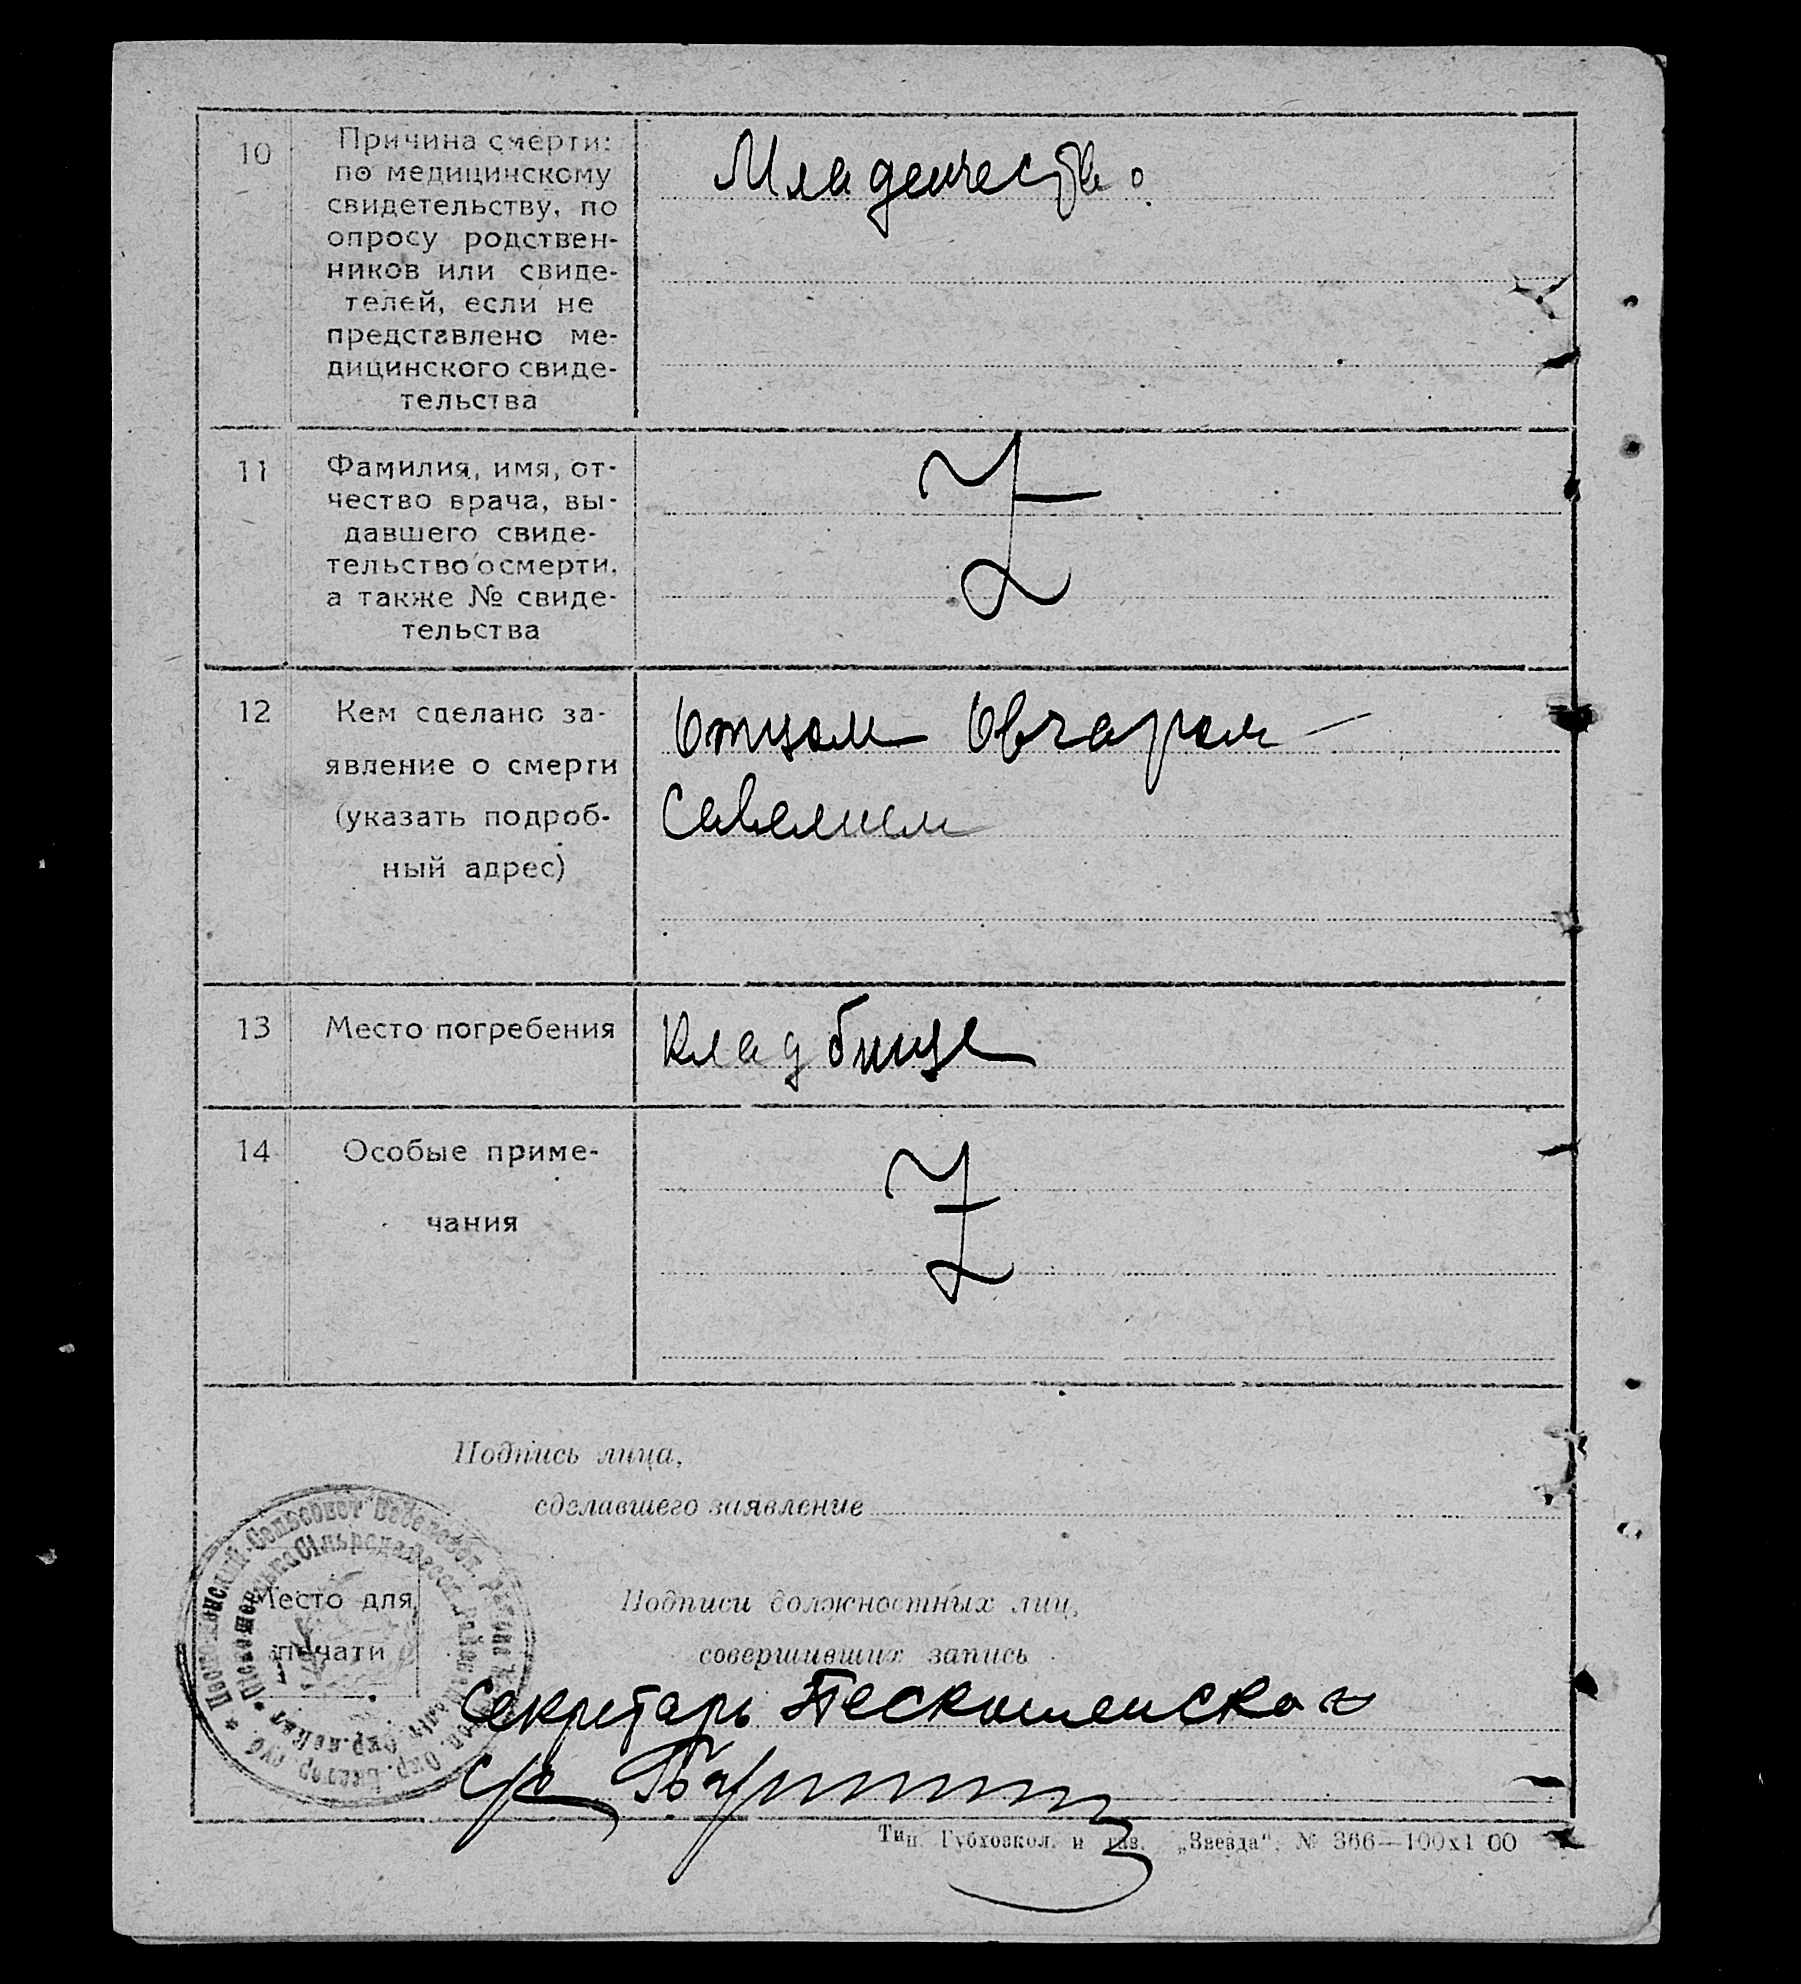 10
Причина смерти:
по медицинскому
свидетельству, по
опросу родствен-
ников или свиде-
телей, если не
представлено ме-
дицинского свиде-
тельства
Младенчество
11
Фамилия, имя, от-
чество врача, вы-
давшего свиде-
тельство о смерти,
а также № свиде-
тельства
Z
12
Кем сделано за-
явление о смерти
(указать подроб-
ный адрес)
Отцом Овчаром
Савелием
13
Место погребения
Кладбище
14
Особые приме-
чания
Z
Подпись лица,
сделавшего заявление
Место для
печати
Подписи должностных лиц,
совершивших запись
Секретарь
с/с
Сельсовет
Сільрада
Тип. Губхозкол. и газ. „Звезда“, № 366—100х1 00